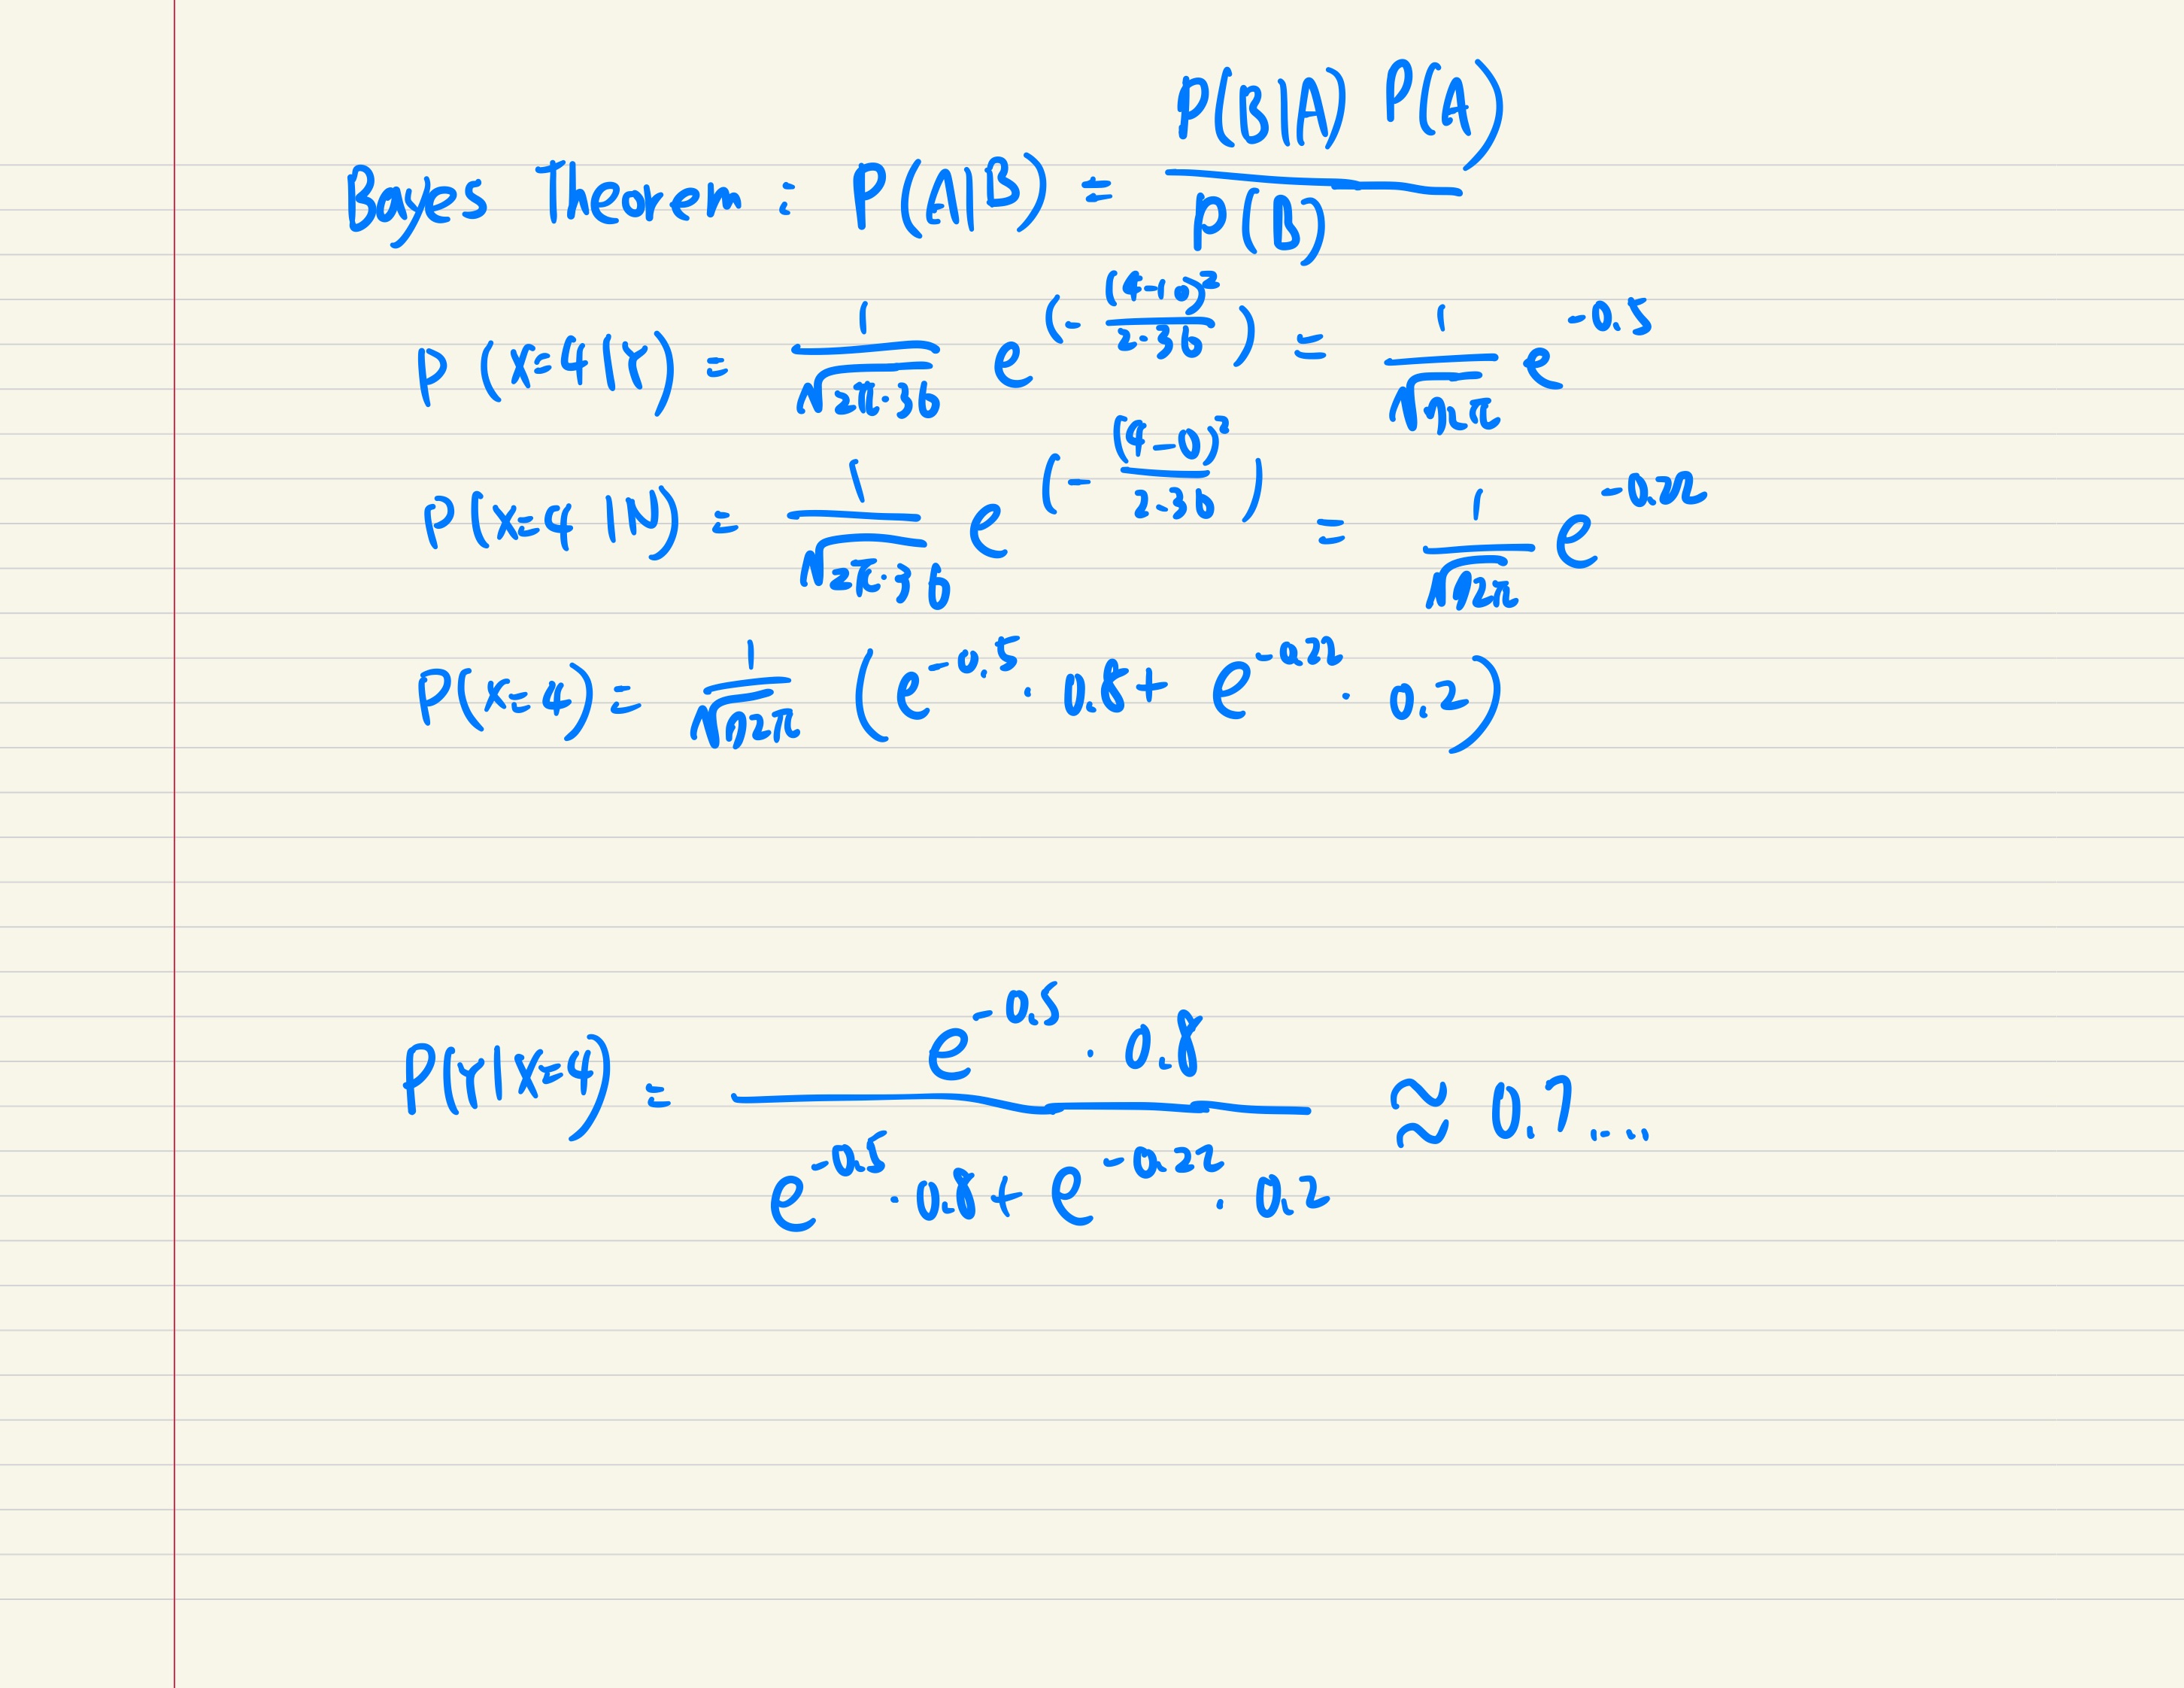 Bayes Theorem : P(A|B) = P(B|A) P(A) / P(B)
P(X=4|Y) = 1/√(2π·36) e^(-(4-10)²/(2·36)) = 1/√(72π) e^-0.5
P(X=4|N) = 1/√(2π·36) e^(-(4-0)²/(2·36)) = 1/√(72π) e^-0.22
P(X=4) = 1/√(72π) (e^-0.5 · 0.8 + e^-0.22 · 0.2)
P(Y|X=4) = e^-0.5 · 0.8 / (e^-0.5 · 0.8 + e^-0.22 · 0.2) ≈ 0.7....